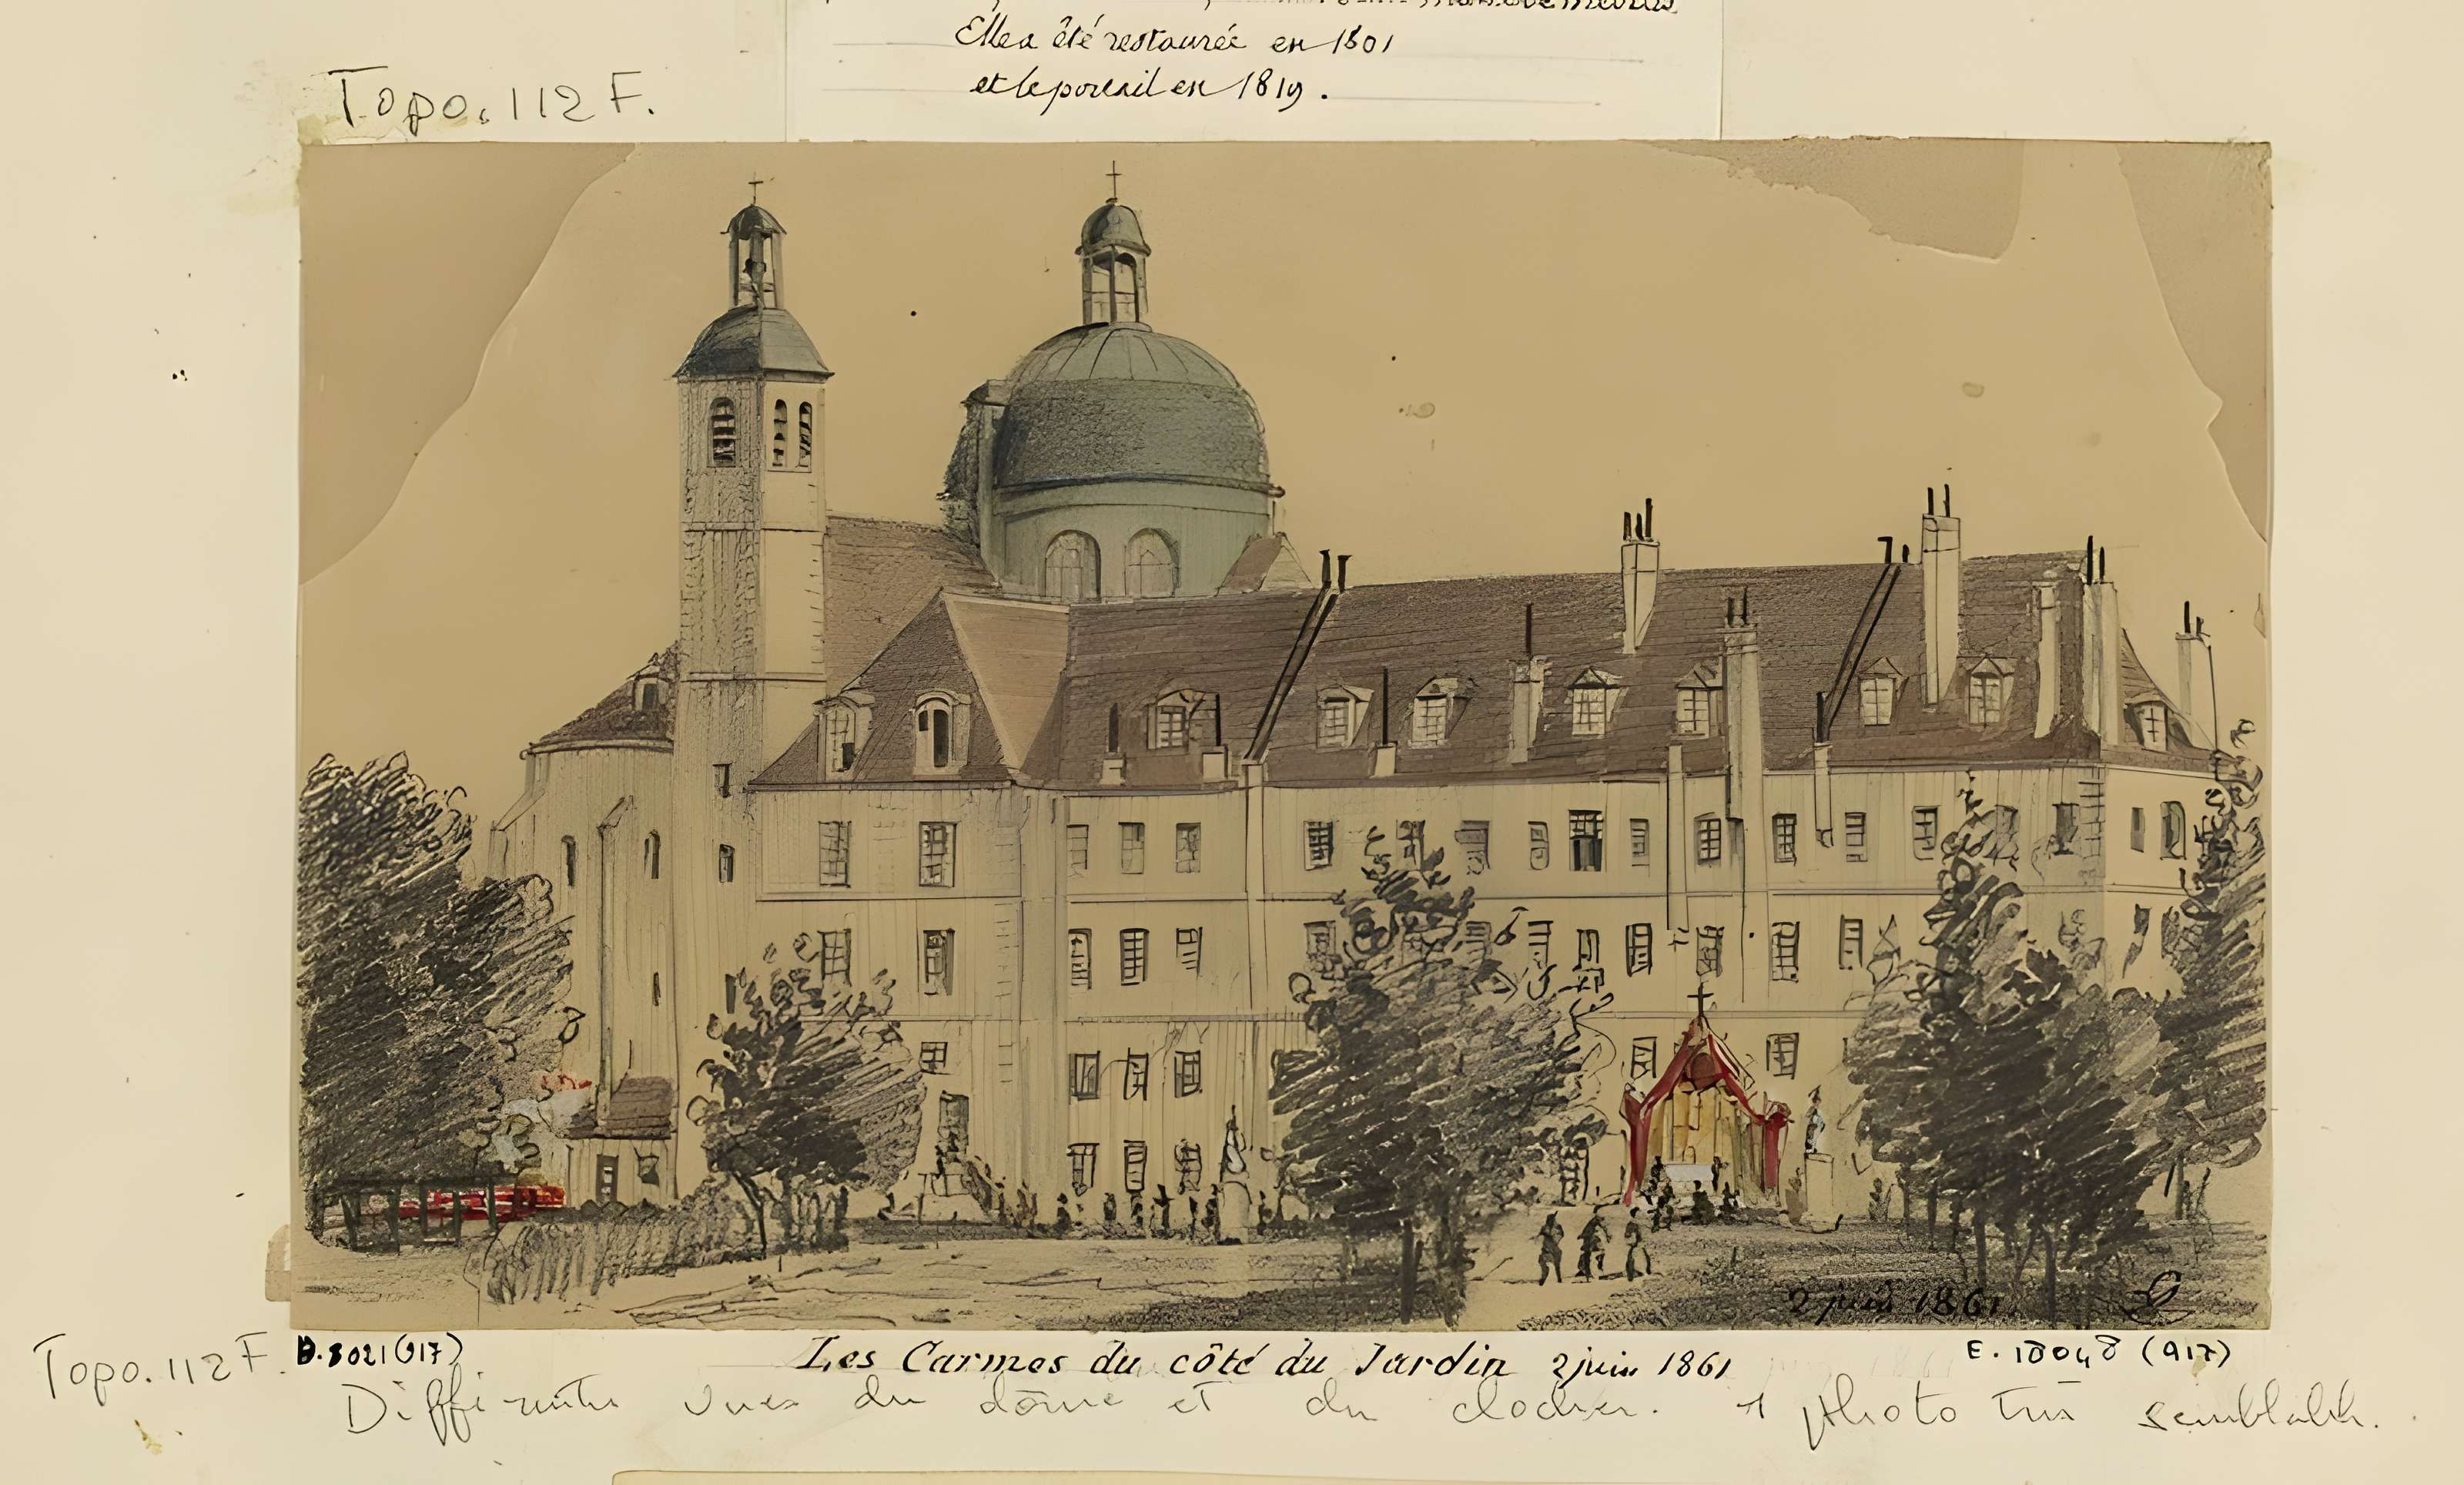 Elle a été restaurée en 1801
et le portail en 1819.
Topo. 112 F.
2 juin 1861.
Topo. 112 F. D.8021(917) Les Carmes du côté du Jardin 2 juin 1861 E. 18048 (917)
Différentes vues du dôme et du clocher. 1 photo très semblable.